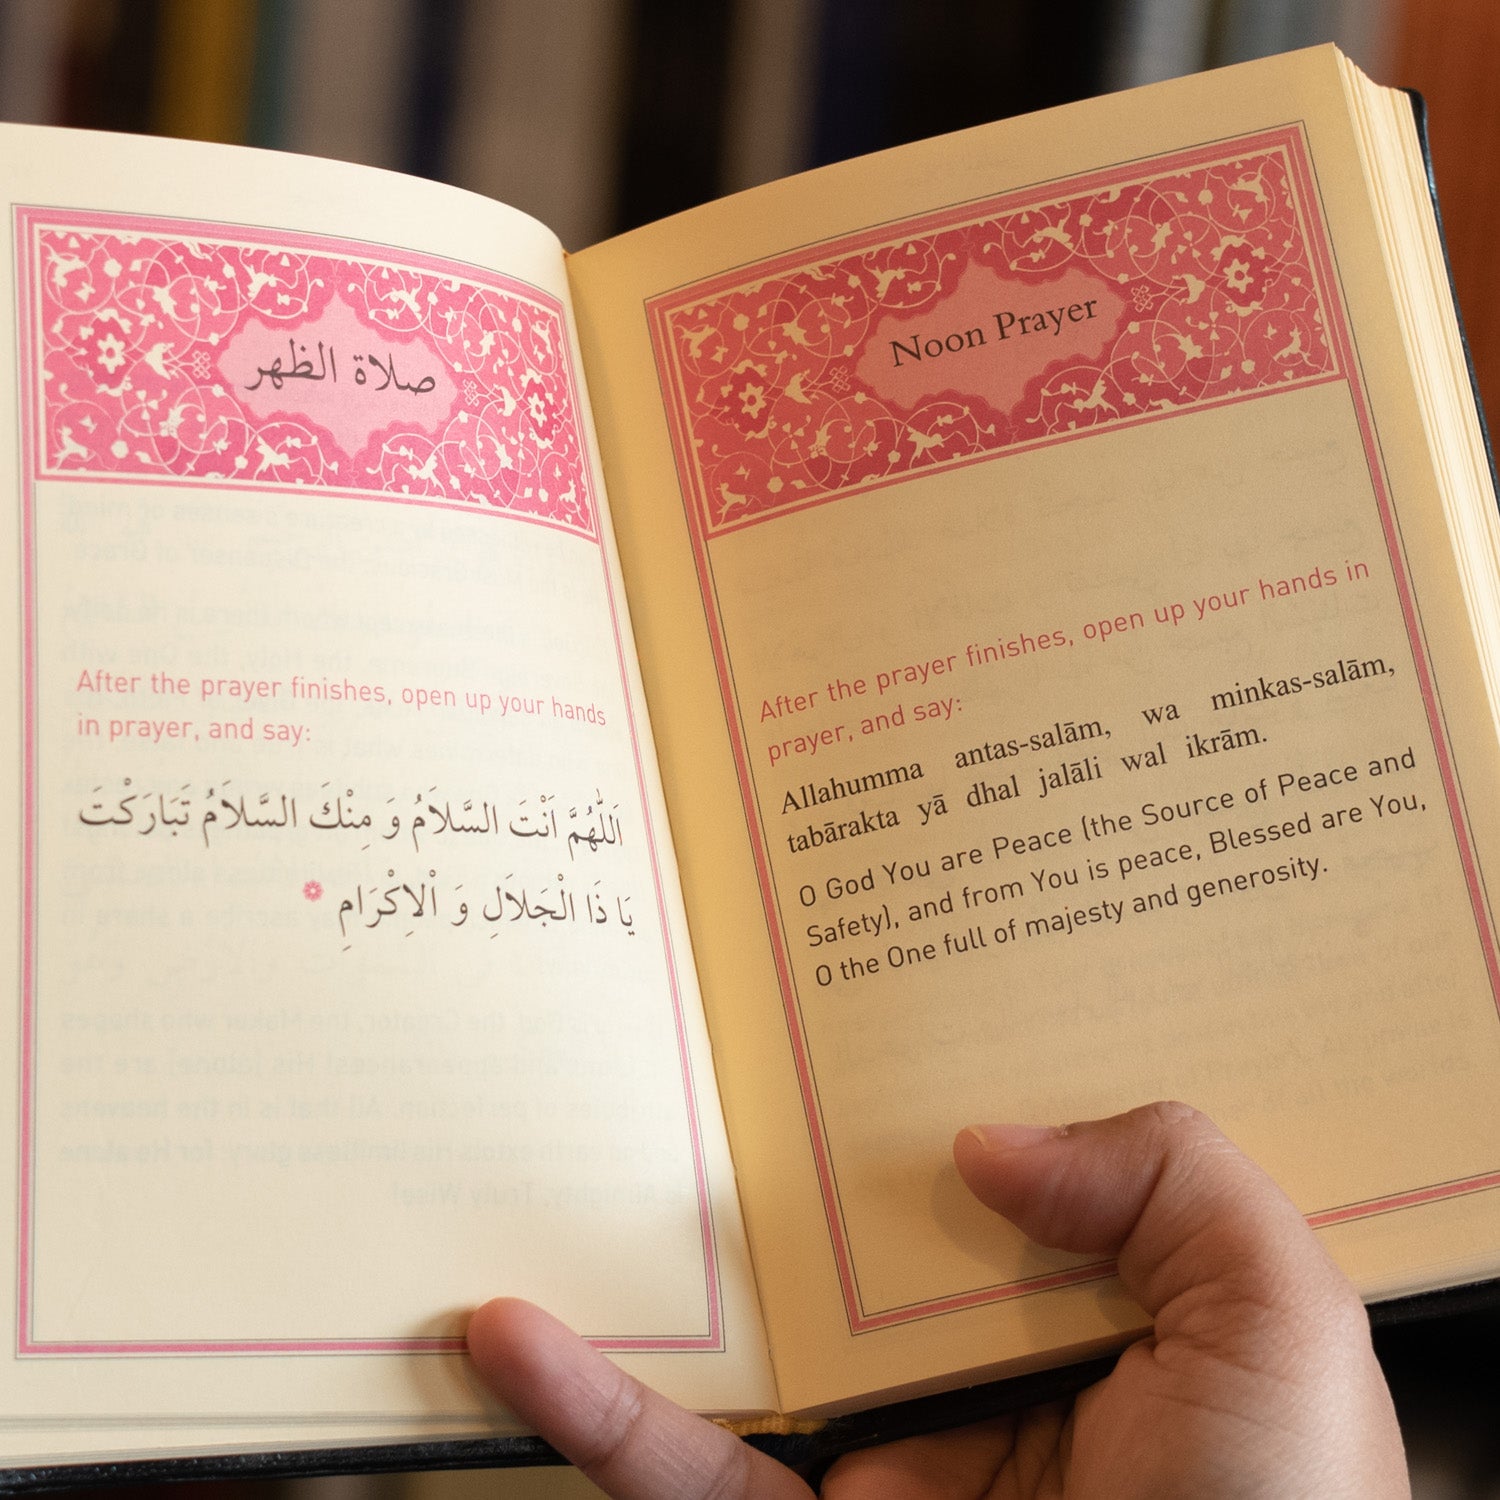 صلاة الظهر
After the prayer finishes, open up your hands
in prayer, and say:
اَللّٰهُمَّ اَنْتَ السَّلاَمُ وَ مِنْكَ السَّلاَمُ تَبَارَكْتَ
يَا ذَا الْجَلاَلِ وَ اْلاِكْرَامِ
Noon Prayer
After the prayer finishes, open up your hands in
prayer, and say:
Allahumma antas-salām, wa minkas-salām,
tabārakta yā dhal jalāli wal ikrām.
O God You are Peace (the Source of Peace and
Safety), and from You is peace, Blessed are You,
O the One full of majesty and generosity.